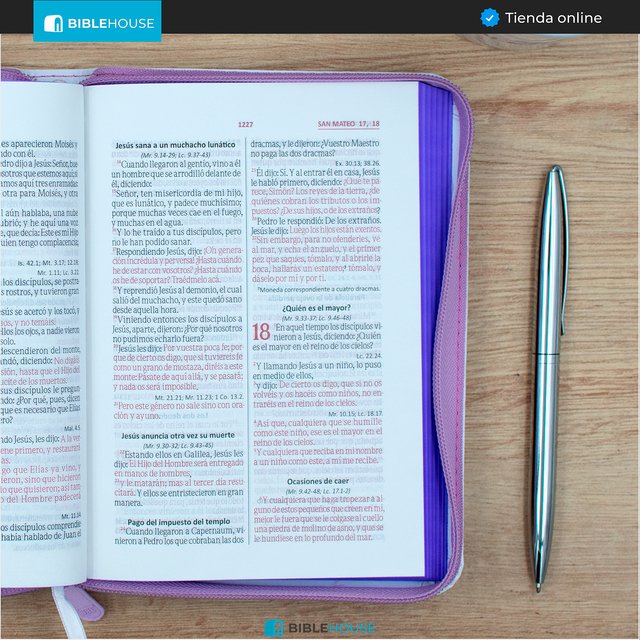 BIBLEHOUSE
Tienda online
es aparecieron Moisés y
ndo con él.
otra para Moisés, y otra
quien tengo complacencia;
Is. 42.1; Mt. 3.17; 12.18
Mr. 1.11; Lc. 3.21
los discípulos, se postra-
s rostros, y tuvieron gran
y no temáis.
llos los ojos, a nadie vieron
solo.
descendieron del monte,
andó, diciendo: No digáis
sión, hasta que el Hijo del
ucite de los muertos.
Mal. 4.5
Mt. 11.14
los discípulos comprendie-
había hablado de Juan el
1227
SAN MATEO 17, 18
Jesús sana a un muchacho lunático
(Mr. 9.14-29; Lc. 9.37-43)
Cuando llegaron al gentío, vino a él
un hombre que se arrodilló delante de
él, diciendo:
Señor, ten misericordia de mi hijo,
que es lunático, y padece muchísimo;
porque muchas veces cae en el fuego,
y muchas en el agua.
Y lo he traído a tus discípulos, pero
no le han podido sanar.
Respondiendo Jesús, dijo: ¡Oh genera-
ción incrédula y perversa! ¿Hasta cuándo
he de estar con vosotros? ¿Hasta cuándo
os he de soportar? Traédmelo acá.
Y reprendió Jesús al demonio, el cual
salió del muchacho, y este quedó sano
desde aquella hora.
Viniendo entonces los discípulos a
Jesús, aparte, dijeron: ¿Por qué nosotros
no pudimos echarlo fuera?
Jesús les dijo: Por vuestra poca fe; por-
que de cierto os digo, que si tuviereis fe
como un grano de mostaza, diréis a este
monte: Pásate de aquí allá, y se pasará;
y nada os será imposible.
Mt. 21.21; Mr. 11.23; 1 Co. 13.2.
Pero este género no sale sino con ora-
ción y ayuno.
Jesús anuncia otra vez su muerte
(Mr. 9.30-32; Lc. 9.43-45)
Estando ellos en Galilea, Jesús les
dijo: El Hijo del Hombre será entregado
en manos de hombres,
y le matarán; mas al tercer día resu-
citará. Y ellos se entristecieron en gran
manera.
Pago del impuesto del templo
Cuando llegaron a Capernaum, vi-
nieron a Pedro los que cobraban las dos
dracmas, y le dijeron: ¿Vuestro Maestro
no paga las dos dracmas?
Ex. 30.13; 38.26.
Él dijo: SÍ. Y al entrar él en casa, Jesús
le habló primero, diciendo: ¿Qué te pa-
rece, Simón? Los reyes de la tierra, ¿de
quiénes cobran los tributos o los im-
puestos? ¿De sus hijos, o de los extraños?
Pedro le respondió: De los extraños.
Jesús le dijo: Luego los hijos están exentos.
Sin embargo, para no ofenderles, vé
al mar, y echa el anzuelo, y el primer
pez que saques, tómalo, y al abrirle la
boca, hallarás un estatero; tómalo, y
dáselo por mí y por ti.
*Moneda correspondiente a cuatro dracmas.
¿Quién es el mayor?
(Mr. 9.33-37; Lc. 9.46-48)
18 En aquel tiempo los discípulos vi-
nieron a Jesús, diciendo: ¿Quién
es el mayor en el reino de los cielos?
Lc. 22.24.
Y llamando Jesús a un niño, lo puso
en medio de ellos,
y dijo: De cierto os digo, que si no os
volvéis y os hacéis como niños, no en-
traréis en el reino de los cielos.
Mr. 10.15; Lc. 18.17.
Así que, cualquiera que se humille
como este niño, ese es el mayor en el
reino de los cielos.
Y cualquiera que reciba en mi nombre
a un niño como este, a mí me recibe.
Ocasiones de caer
(Mr. 9.42-48; Lc. 17.1-2)
Y cualquiera que haga tropezar a al-
guno de estos pequeños que creen en mí,
mejor le fuera que se le colgase al cuello
una piedra de molino de asno, y que se
le hundiese en lo profundo del mar.
BIBLEHOUSE